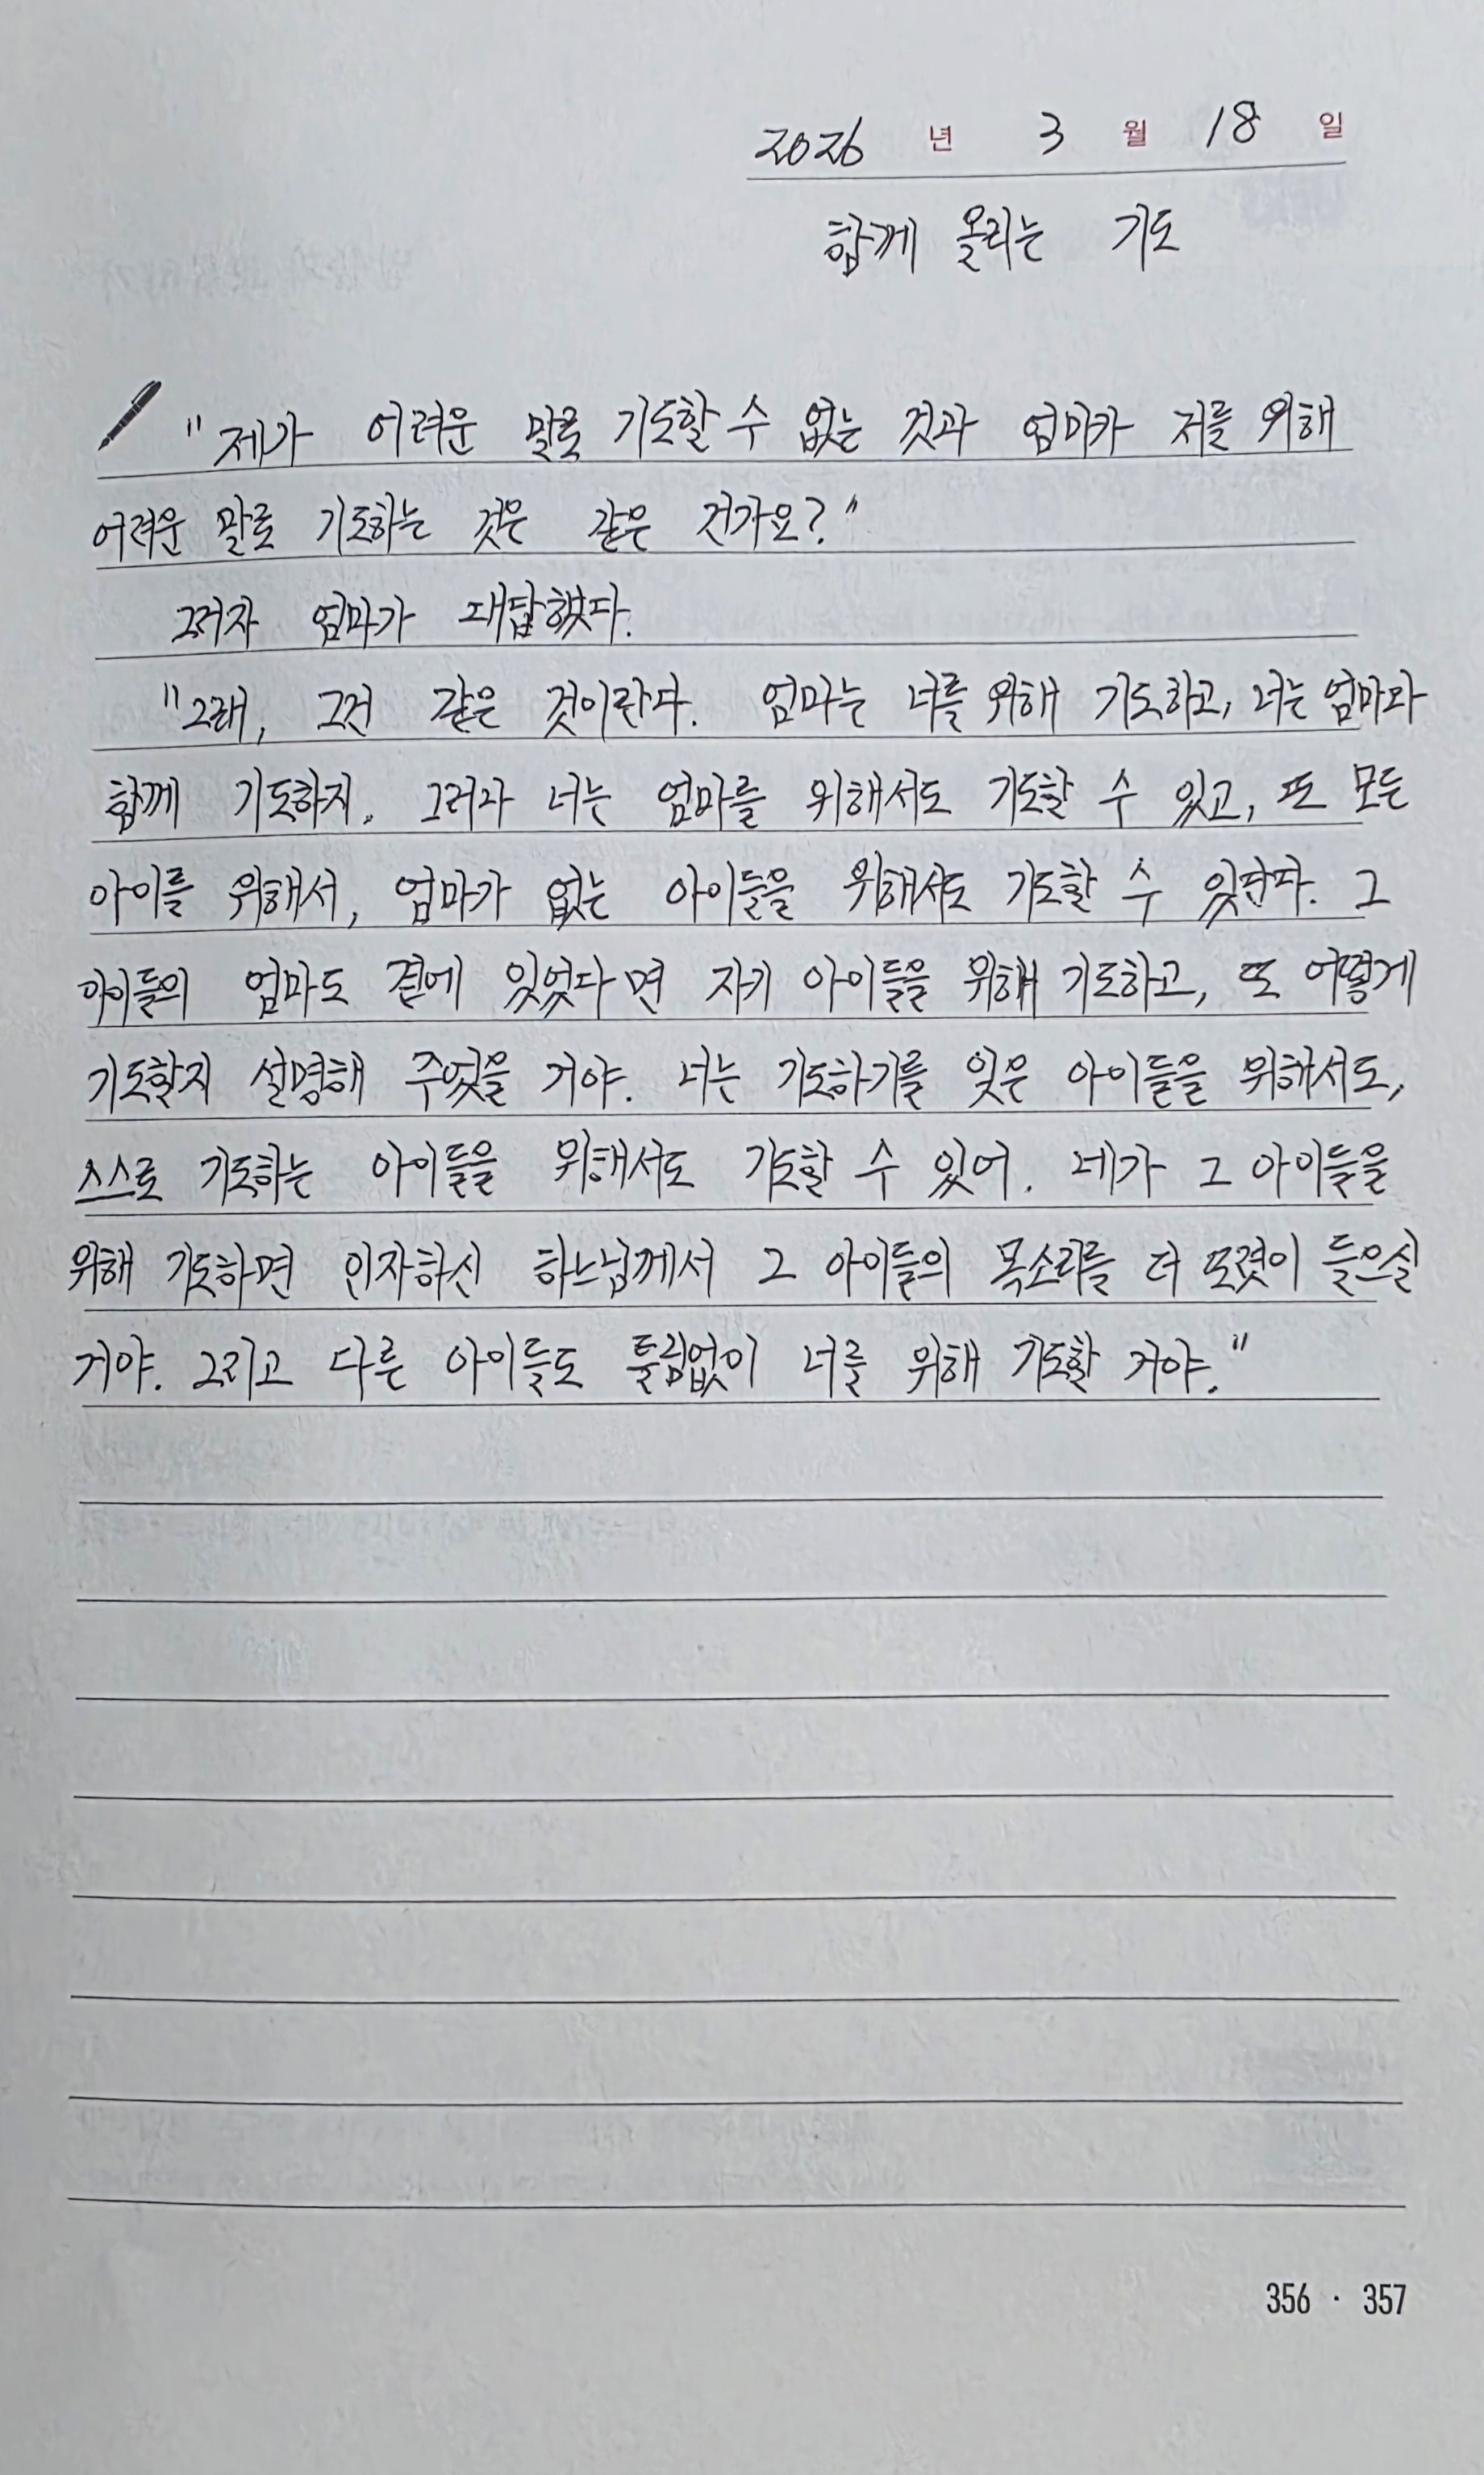 2026 년 3 월 18 일
함께 올리는 기도
"제가 어려운 말로 기도할 수 없는 것과 엄마가 저를 위해
어려운 말로 기도하는 것은 같은 건가요?"
그러자 엄마가 대답했다.
"그래, 그건 같은 것이란다. 엄마는 너를 위해 기도하고, 너는 엄마와
함께 기도하지. 그러나 너는 엄마를 위해서도 기도할 수 있고, 또 모든
아이를 위해서, 엄마가 없는 아이들을 위해서도 기도할 수 있단다. 그
아이들의 엄마도 곁에 있었다면 자기 아이들을 위해 기도하고, 또 어떻게
기도할지 설명해 주었을 거야. 너는 기도하기를 잊은 아이들을 위해서도,
스스로 기도하는 아이들을 위해서도 기도할 수 있어. 네가 그 아이들을
위해 기도하면 인자하신 하느님께서 그 아이들의 목소리를 더 또렷이 들으실
거야. 그리고 다른 아이들도 틀림없이 너를 위해 기도할 거야."
356 · 357